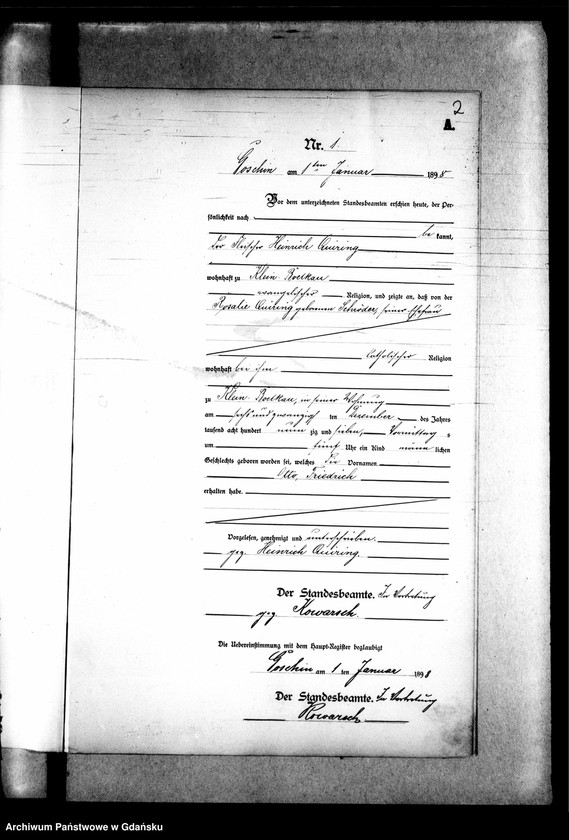 2
A.
Nr. 1.
Goschin am 1ten Januar 1898
Vor dem unterzeichneten Standesbeamten erschien heute, der Per-
sönlichkeit nach
be kannt,
der Fleischer Heinrich Quiring
wohnhaft zu Klein Boelkau
evangelischer Religion, und zeigte an, daß von der
Rosalie Quiring geborenen Schröder, seiner Ehefrau
katholischer Religion
wohnhaft bei ihm
zu Klein Boelkau, in seiner Wohnung
am sechsundzwanzig ten Dezember des Jahres
tausend acht hundert neun zig und sieben, Vormittag s
um fünf Uhr ein Kind männ lichen
Geschlechts geboren worden sei, welches die Vornamen
Otto, Friedrich
erhalten habe.
Vorgelesen, genehmigt und unterschrieben.
gez. Heinrich Quiring.
Der Standesbeamte. In Vertretung
gez. Kowarsch.
Die Uebereinstimmung mit dem Haupt-Register beglaubigt
Goschin am 1 ten Januar 1898
Der Standesbeamte. In Vertretung
Kowarsch
Archiwum Państwowe w Gdańsku